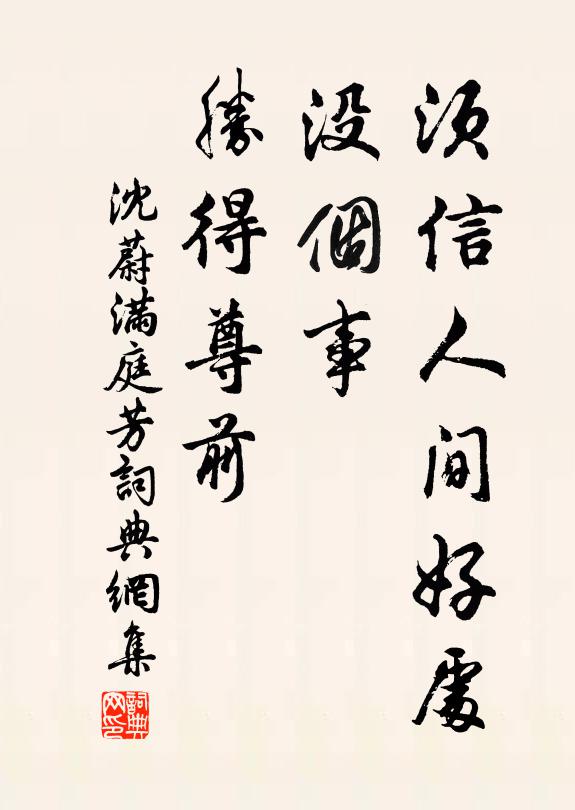 須信人间好處
没個事
勝得尊前
沈蔚滿庭芳詞典網集
詞典网印